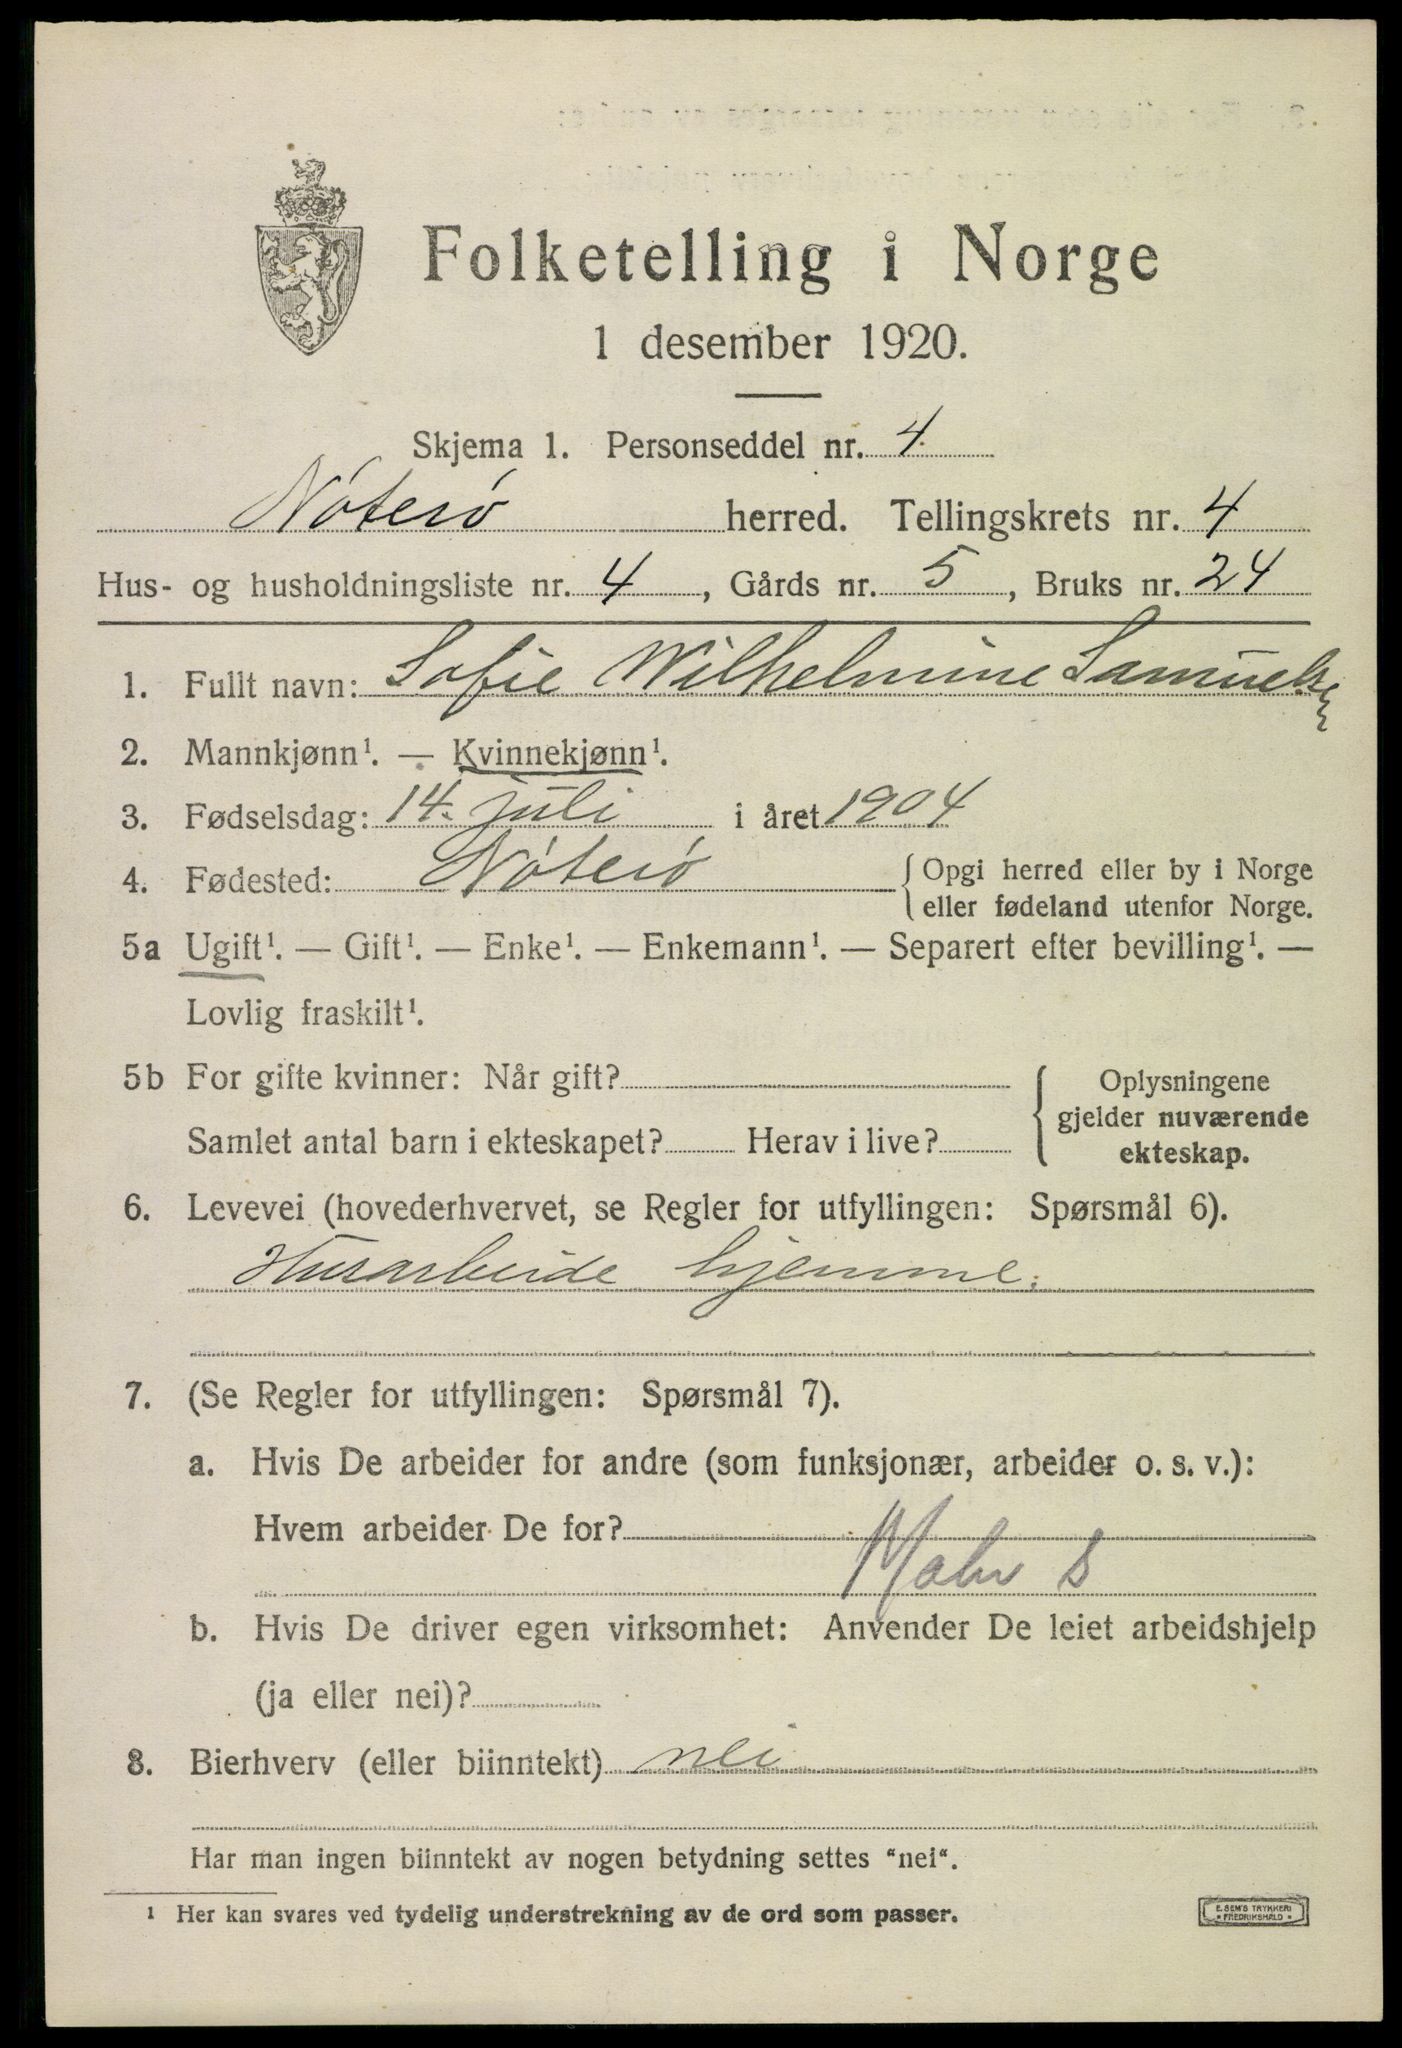 Folketelling i Norge
1 desember 1920.
Skjema 1. Personseddel nr. 4
Nóteró herred. Tellingskrets nr. 4
Hus- og husholdningsliste nr. 4, Gårds nr. 5, Bruks nr. 24
1. Fullt navn: Sofie Wilhelmine Samuelsen
2. Mannkjønn¹. — Kvinnekjønn¹.
3. Fødselsdag: 14. juli i året 1904
4. Fødested: Nóteró { Opgi herred eller by i Norge
eller fødeland utenfor Norge.
5a Ugift¹. — Gift¹. — Enke¹. — Enkemann¹. — Separert efter bevilling¹. —
Lovlig fraskilt¹.
5b For gifte kvinner: Når gift?
Samlet antal barn i ekteskapet? Herav i live?
{ Oplysningene
gjelder nuværende
ekteskap.
6. Levevei (hovederhvervet, se Regler for utfyllingen: Spørsmål 6).
Husarbeide hjemme.
7. (Se Regler for utfyllingen: Spørsmål 7).
a. Hvis De arbeider for andre (som funksjonær, arbeider o. s. v.):
Hvem arbeider De for?
b. Hvis De driver egen virksomhet: Anvender De leiet arbeidshjelp
(ja eller nei)?
8. Bierhverv (eller biinntekt) nei
Har man ingen biinntekt av nogen betydning settes "nei".
¹ Her kan svares ved tydelig understrekning av de ord som passer.
E. SEM'S TRYKKERI
* FREDRIKSHALD *